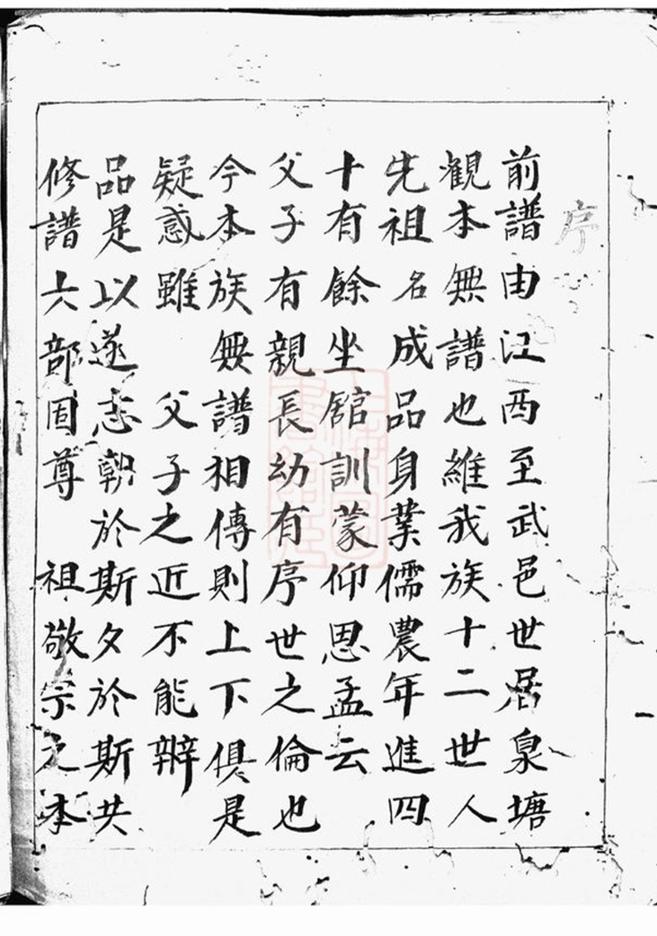 序
前譜由江西至武邑世居泉塘
觀本無譜也維我族十二世人
先祖名成品身業儒農年進四
十有餘坐舘訓蒙仰思孟云
父子有親長幼有序世之倫也
今本族無譜相傳則上下俱是
疑惑雖父子之近不能辧
品是以遂志朝於斯夕於斯共
修譜六部固尊祖敬宗之本